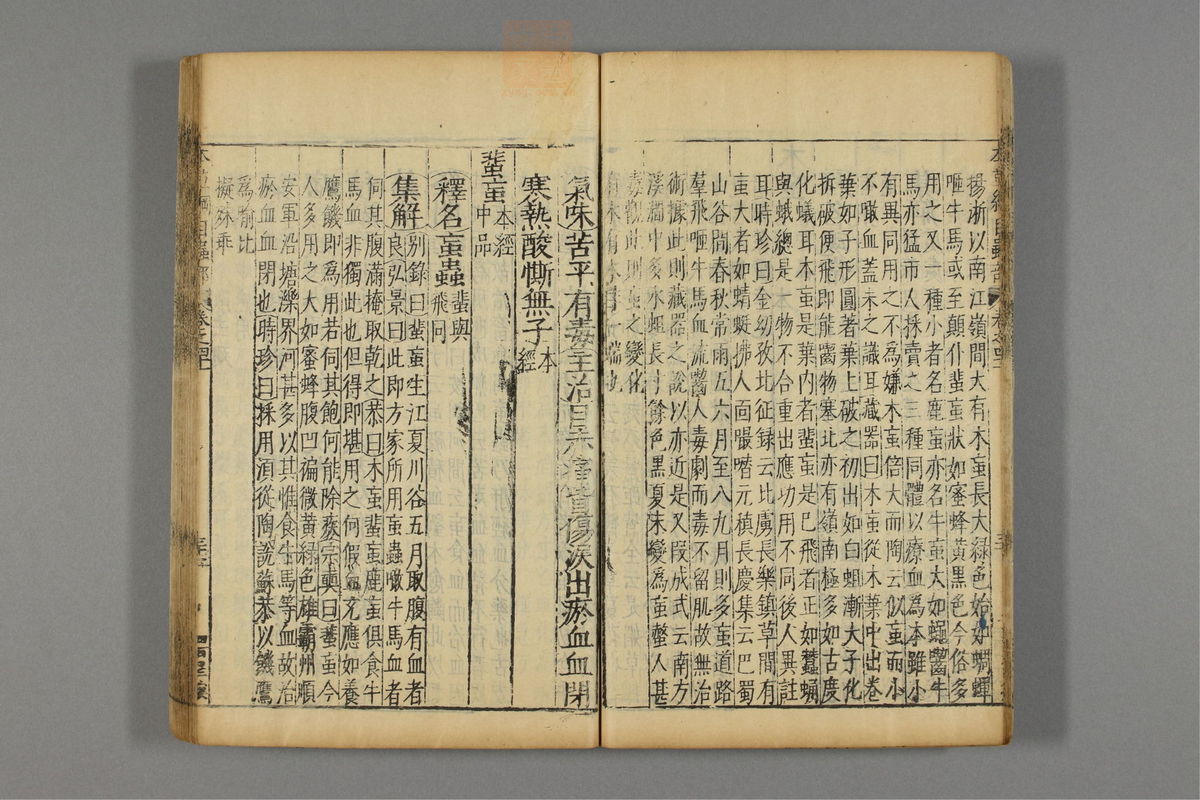 揚浙以南江嶺間大有木䖟長大綠色始如蜩蟬
咂牛馬或至顛仆蜚䖟狀如蜜蜂黃黑色今俗多
用之又一種小者名鹿䖟亦名牛䖟大如蠅齧牛
馬亦猛市人採賣之三種同體以療血為本雖小
有異同用之不為嫌木䖟倍大而陶云似䖟而小
不噉血蓋未之識耳藏器曰木䖟從木葉中出卷
葉如子形圓著葉上破之初出如白蛆漸大子化
拆破便飛即能齧物塞北亦有嶺南極多如古度
化蟻耳木䖟是葉內者蜚䖟是已飛者正如蠶蛹
與蛾總是一物不合重出應功用不同後人異註
耳時珍曰金幼孜北征録云北虜長樂鎮草間有
䖟大者如蜻蜓拂人面嘬噆元稹長慶集云巴蜀
山谷間春秋常雨五六月至八九月則多䖟道路
羣飛咂牛馬血流齧人毒劇而毒不留肌故無治
術據此則藏器之說以亦近是又段成式云南方
溪澗中多水蛆長寸餘色黑夏末變為䖟螫人甚
毒觀此則䖟之變化
有木有水
氣味苦平有毒主治目赤痛眥傷淚出瘀血血閉
寒熱酸㾷無子本經
蜚䖟本經中品
釋名䖟蟲蜚與飛同
集解別錄曰蜚䖟生江夏川谷五月取腹有血者
良弘景曰此即方家所用䖟蟲噉牛馬血者
伺其腹滿掩取乾之恭曰木䖟蜚䖟鹿䖟俱食牛
馬血非獨此也但得即堪用之何假血充應如養
鷹饑即為用若伺其飽何能除疾宗奭曰蜚䖟今
人多用之大如蜜蜂腹凹褊微黃綠色雄霸州順
安軍沿塘濼界河甚多以其惟食牛馬等血故治
瘀血血閉也時珍曰採用須從陶說蘇恭以饑鷹
為喻比
擬殊乖